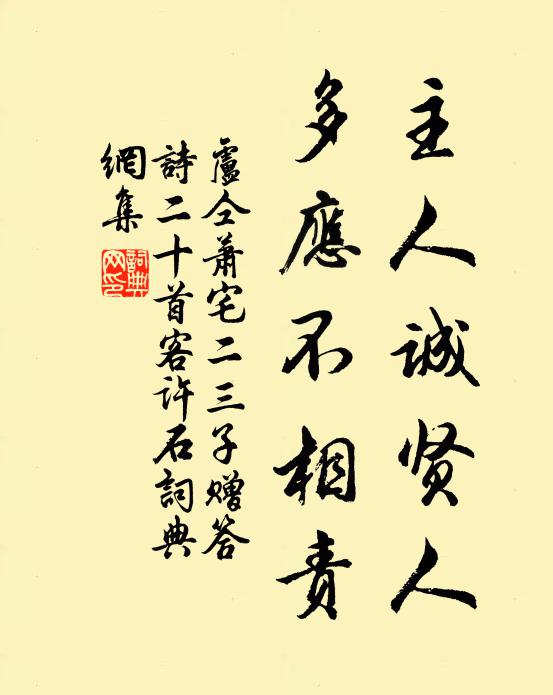 主人诚贤人
多應不相责
盧仝萧宅二三子赠答
詩二十首客许石詞典
網集
詞典網印